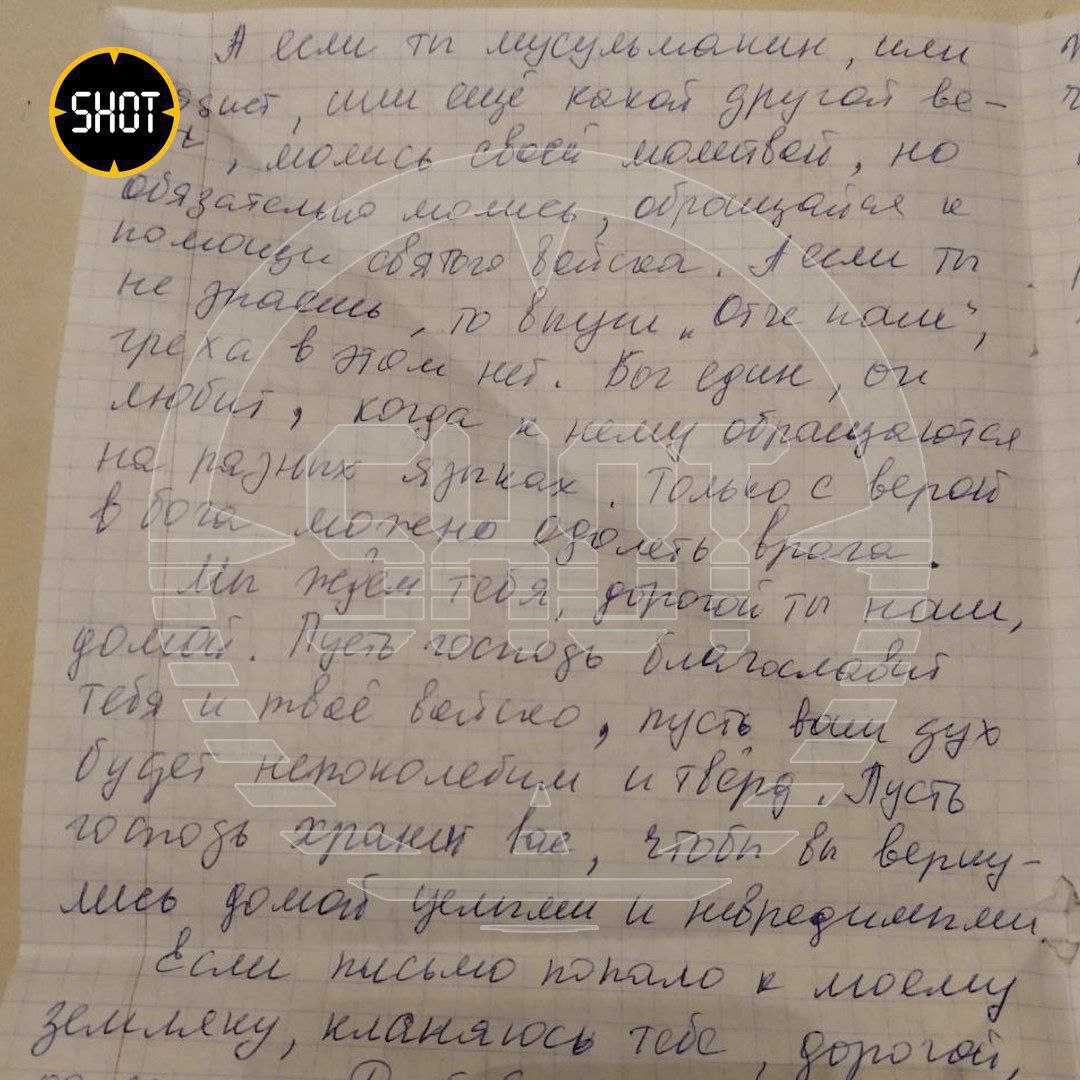 SHOT
А если ты мусульманин, или
, или ещё какой другой ве-
, молись своей молитвой, но
обязательно молись, обращайся к
помощи святого войска. А если ты
не знаешь, то впиши „Отче наш“,
греха в этом нет. Бог един, он
любит, когда к нему обращаются
на разных языках. Только с верой
в бога можно одолеть врага.
Мы ждём тебя, дорогой ты наш,
домой. Пусть господь благославит
тебя и твоё войско, пусть ваш дух
будет непоколебим и твёрд. Пусть
господь хранит вас, чтобы вы верну-
лись домой целыми и невредимыми
Если письмо попало к моему
земляку, кланяюсь тебе, дорогой,